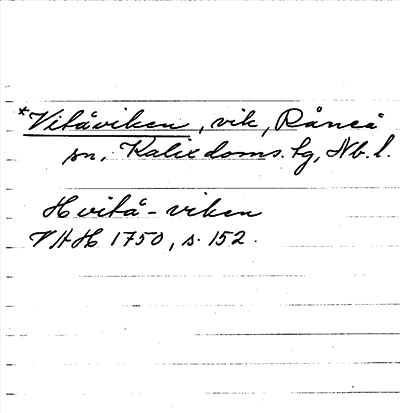 *Vitåviken, vik, Råneå
sn, Kalix doms. tg, Nb. l.
Hvitå-viken
VAH 1750, s. 152.